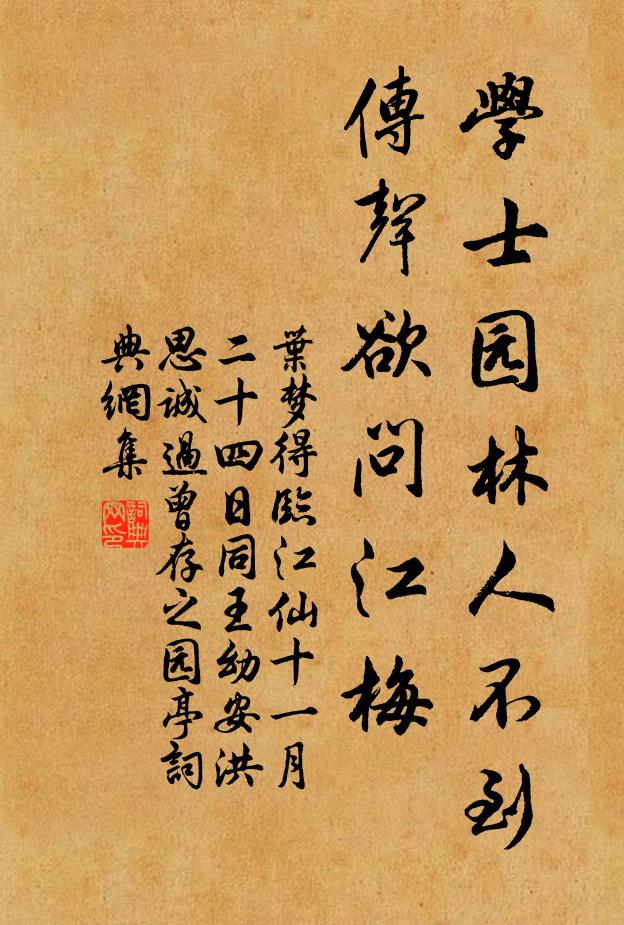 學士园林人不到
傳聲欲問江梅
葉梦得臨江仙十一月
二十四日同王幼安洪
思誠過曾存之园亭詞
典網集
詞典
网印